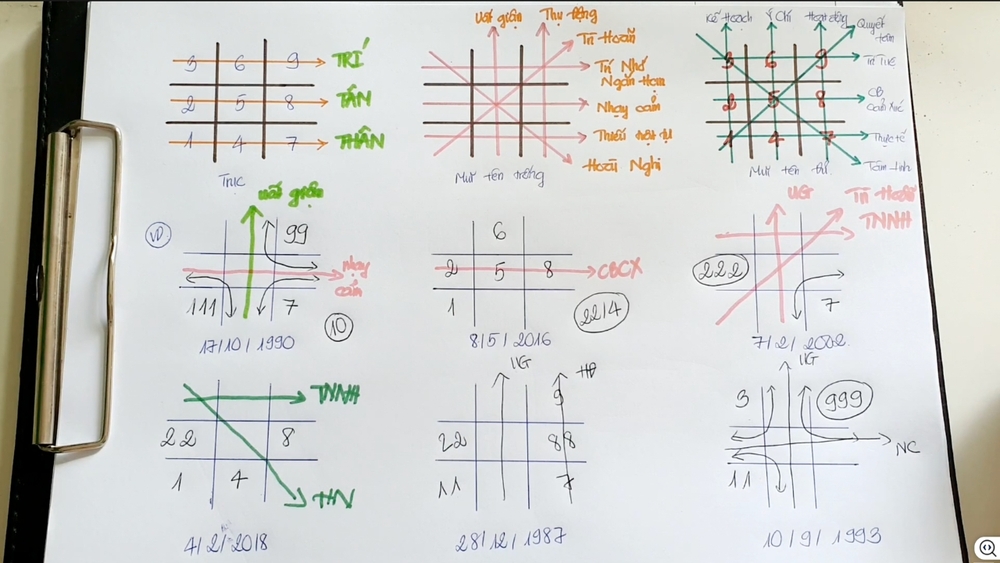 3 6 9 TRÍ
2 5 8 TÂN
1 4 7 THÂN
Trục
Uất giận Thụ động
Trì Hoãn
Trí Nhớ
Ngắn Hạn
Nhạy cảm
Thiếu trật tự
Hoài Nghi
Mũi tên trống
Kế Hoạch Ý Chí Hoạt động
Quyết
tâm
3 6 9 Trí Tuệ
2 5 8 CB
Cảm Xúc
1 4 7 Thực tế
Tâm linh
Mũi tên
VD
uất giận
99
nhạy
cảm
111 7
10
17/10/1990
6
2 5 8 CBCX
1
22/4
8/5/2016
UG
Trì Hoãn
TNNH
222
7
7/2/2002
TNNH
22 8
1 4
HN
4/2/2018
UG HĐ
9
22 88
11 7
28/12/1987
UG
3 999
NC
11
10/9/1993